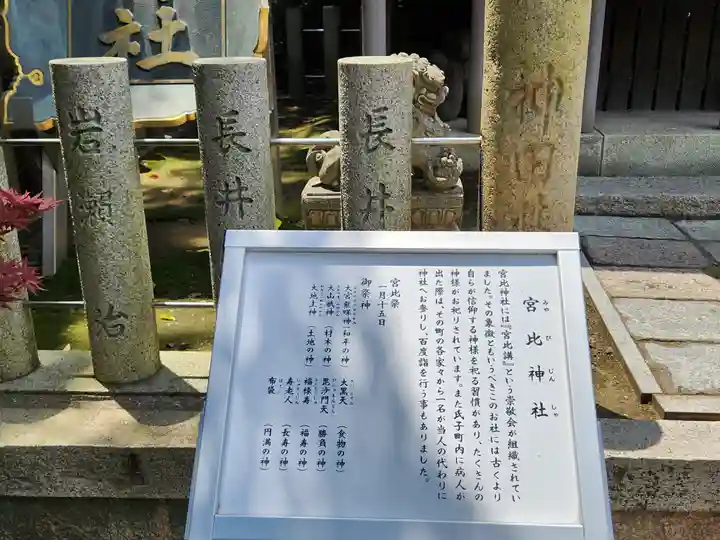 社
岩瀬
治
長井
長井
神田
宮比神社
みやびじんしゃ
宮比神社には『宮比講』という崇敬会が組織されてい
ました。その象徴ともいうべきこのお社には古くより
自らが信仰する神様を祀る習慣があり、たくさんの
神様がお祀りされています。また氏子町内に病人が
出た際は、その町の各家々から一名が当人の代わりに
神社へお参りし、百度詣を行う事もありました。
宮比祭
一月十五日
御祭神
大宮能姫神（和平の神）
大山祇神（材木の神）
大地主神（土地の神）
大黒天（食物の神）
毘沙門天（勝負の神）
福禄寿（福寿の神）
寿老人（長寿の神）
布袋（円満の神）